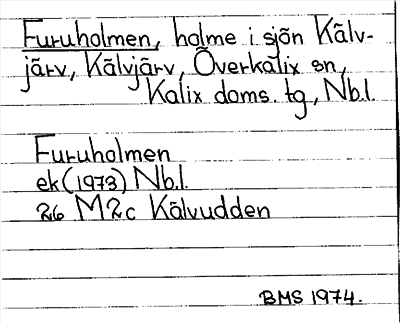 Furuholmen, holme i sjön Kälv-
järv, Kälvjärv, Överkalix sn,
Kalix doms. tg, Nb.l.
Furuholmen
ek (1973) Nb.l.
26 M2c Kälvudden
BMS 1974.